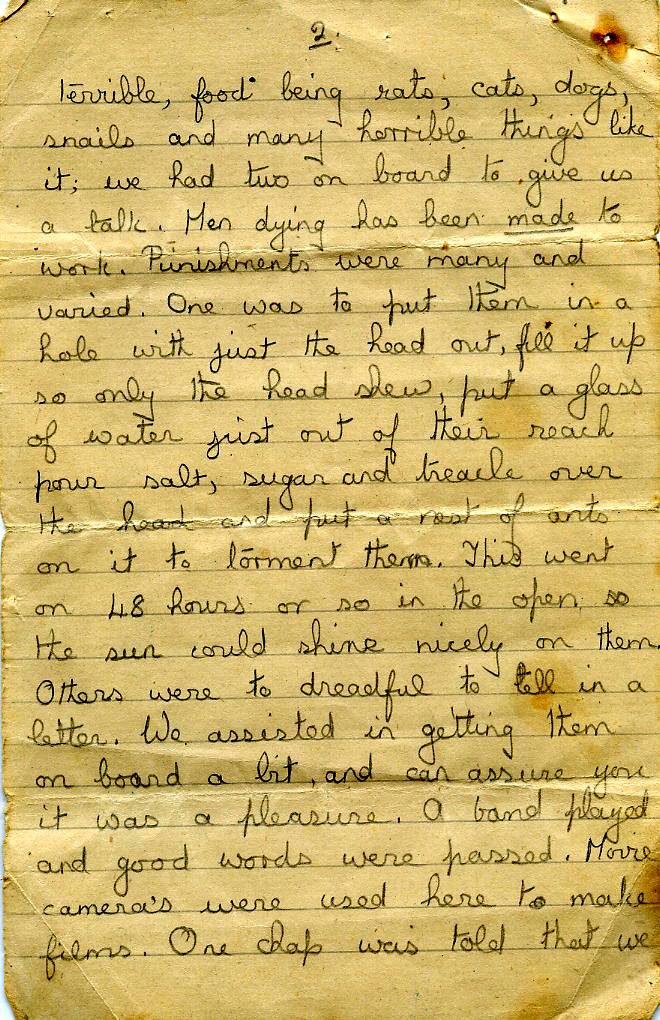 2.
Terrible, food being rats, cats, dogs,
snails and many horrible things like
it; we had two on board to give us
a talk. Men dying has been made to
work. Punishments were many and
varied. One was to put them in a
hole with just the head out, fill it up
so only the head shew, put a glass
of water just out of their reach
pour salt, sugar and treacle over
the head and put a nest of ants
on it to torment them. This went
on 48 hours or so in the open, so
the sun could shine nicely on them.
Others were to dreadful to tell in a
letter. We assisted in getting them
on board a bit, and can assure you
it was a pleasure. A band played
and good words were passed. Movie
camera's were used here to make
films. One chap was told that we